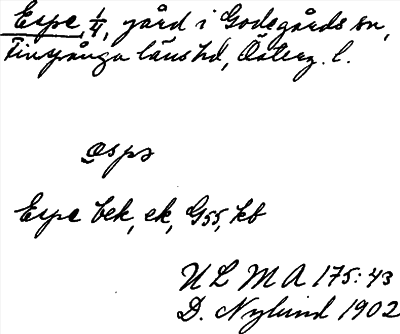 Espe, 1/4, gård i Godegårds sn,
Finspånga läns hd, Österg. l.
æspə
Espe bek, ek, G55, kb
ULMA 175:43
D. Nylund 1902